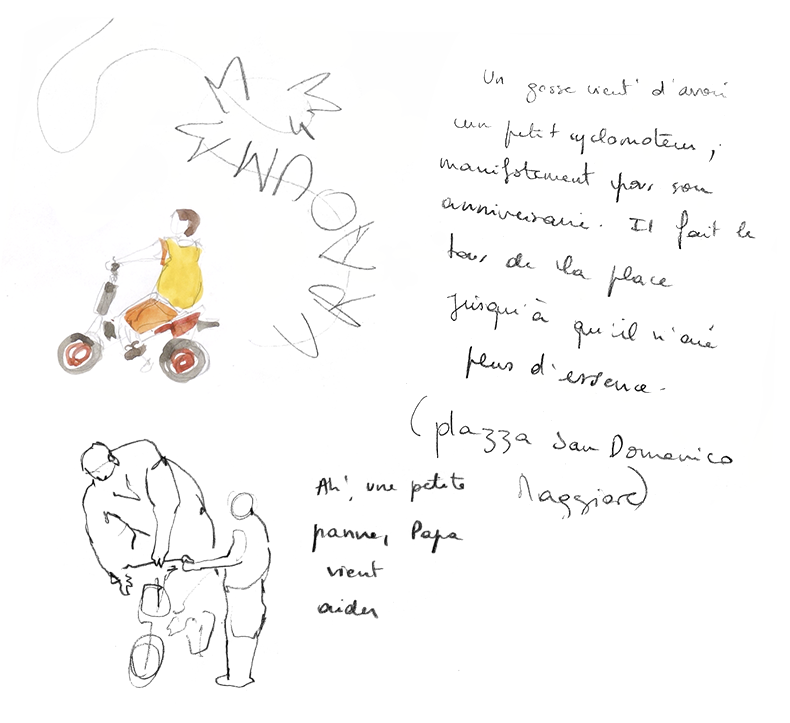 VRAOUMMMM
Un gosse vient d'avoir
un petit cyclomoteur,
manifestement pour son
anniversaire. Il fait le
tour de la place
jusqu'à qu'il n'ait
plus d'essence.
(piazza San Domenico
Maggiore)
Ah!, une petite
panne, Papa
vient
aider